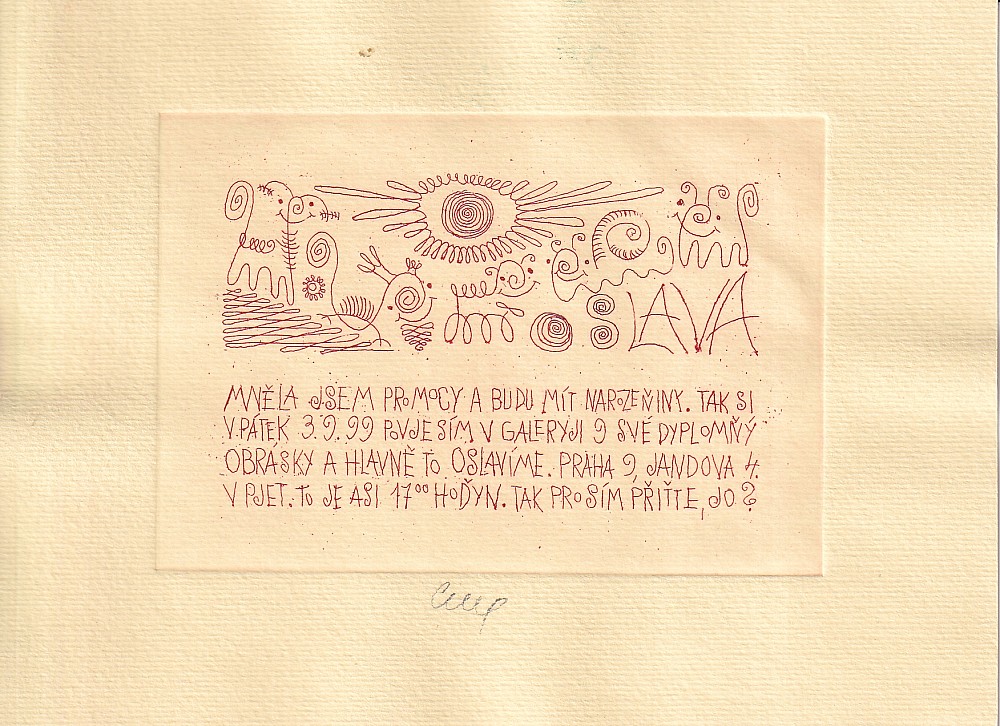 OSLAVA
MNĚLA JSEM PROMOCY A BUDU MÍT NAROZEŇINY. TAK SI
V PÁTEK 3.9.99 POVJESÍM V GALERYJI 9 SVÉ DYPLOMŇÝ
OBRÁSKY A HLAVNĚ TO OSLAVÍME. PRAHA 9, JANDOVA 4.
V PJET. TO JE ASI 17⁰⁰ HOĎYN. TAK PROSÍM PŘIŤTE, JO?